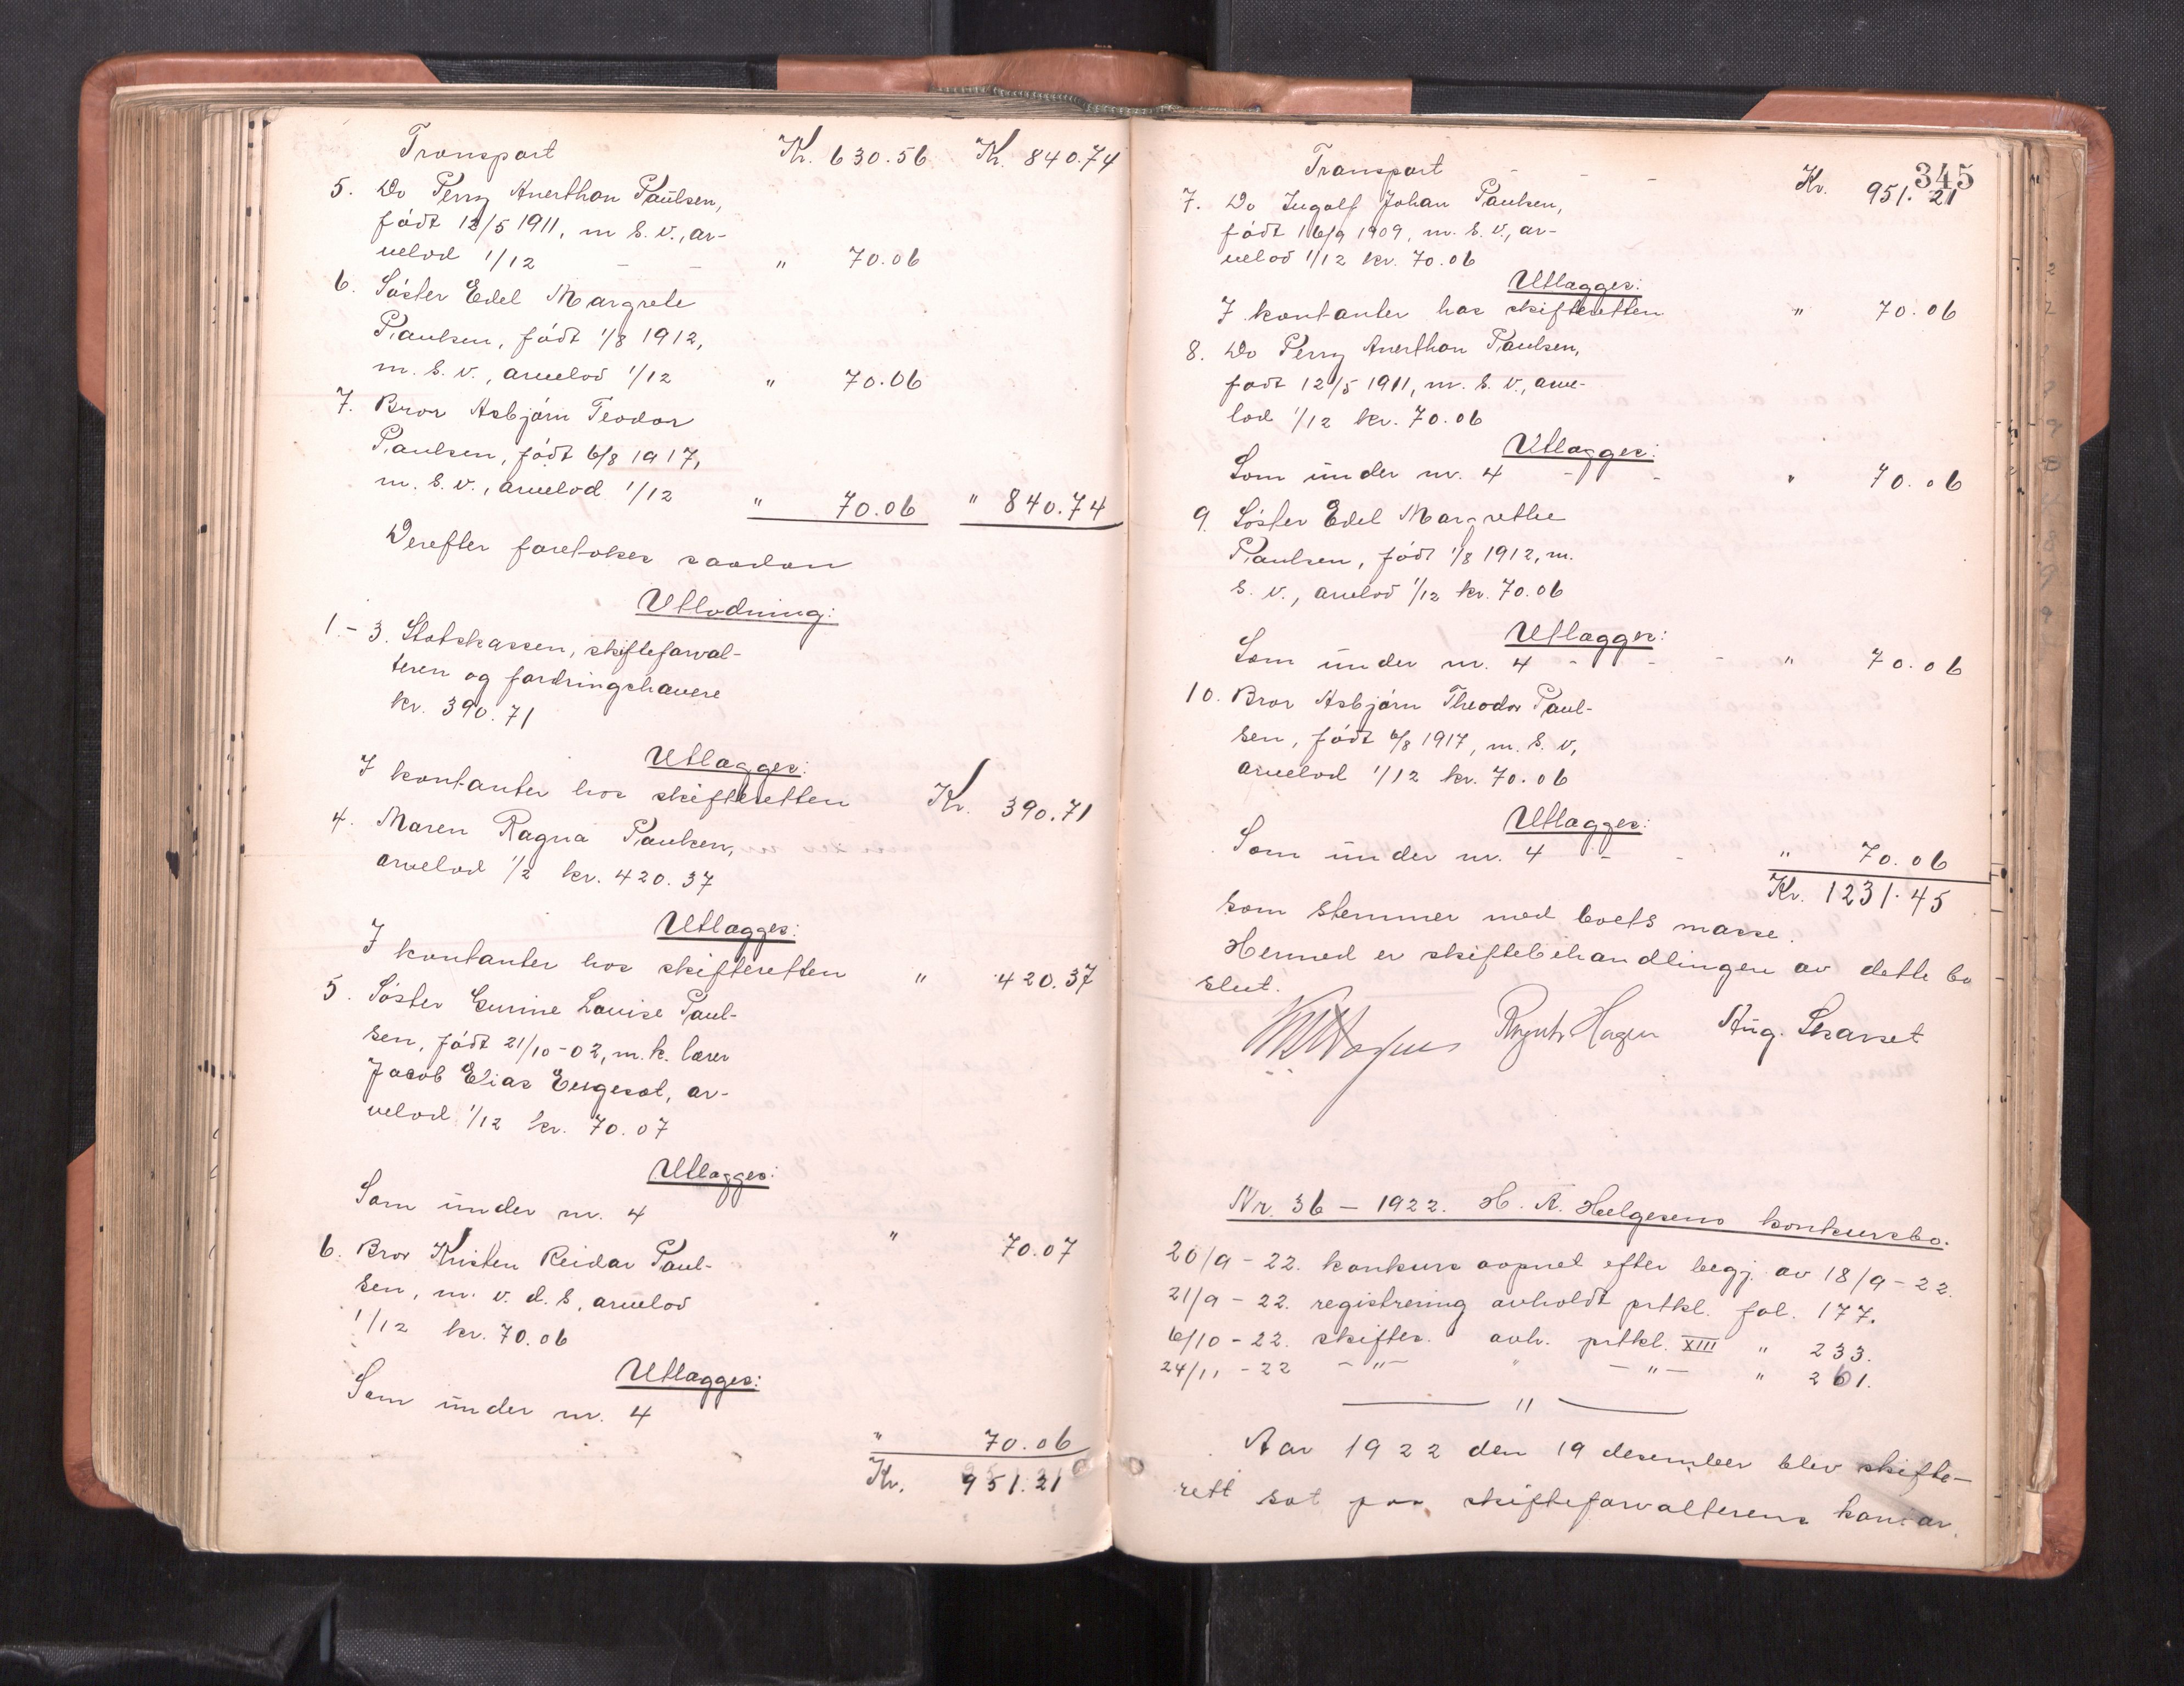 Transport Kr. 630.56 Kr. 840.74
5. Do Perry Anerthon Paulsen,
født 12/5 1911, m. s. v., ar-
velod 1/12 - - " 70.06
6. Søster Edel Margrete
Paulsen, født 1/8 1912,
m. s. v., arvelod 1/12 " 70.06
7. Bror Asbjørn Teodor
Paulsen, født 6/8 1917,
m. s. v., arvelod 1/12 " 70.06 " 840.74
Derefter foretokes saadan
Utlodning:
1.-3. Statskassen, skifteforval-
teren og fordringshavere
kr. 390.71
Utlægges:
I kontanter hos skifteretten Kr. 390.71
4. Maren Ragna Paulsen,
arvelod 1/2 kr. 420.37
Utlægges:
I kontanter hos skifteretten " 420.37
5. Søster Gurine Louise Paul-
sen, født 21/10-02, m. k. lærer
Jacob Elias Engesat, ar-
velod 1/12 kr. 70.07
Utlægges:
Som under nr. 4 " 70.07
6. Bror Kristen Reidar Paul-
sen, m. v. d. s, arvelod
1/12 kr. 70.06
Utlægges:
Som under nr. 4 " 70.06
Kr. 951.21
345
Transport - - - Kr. 951.21
7. Do Ingolf Johan Paulsen,
født 16/9 1909, m. s. v., ar-
velod 1/12 kr. 70.06
Utlægges:
I kontanter hos skifteretten " 70.06
8. Do Perry Anerthon Paulsen,
født 12/5 1911, m. s. v., arve-
lod 1/12 kr. 70.06
Utlægges:
Som under nr. 4 - - " 70.06
9. Søster Edel Margrethe
Paulsen, født 1/8 1912, m.
s. v., arvelod 1/12 kr. 70.06
Utlægges:
Som under nr. 4 - - - " 70.06
10. Bror Asbjørn Theodor Paul-
sen, født 6/8 1917, m. s. v,
arvelod 1/12 kr. 70.06
Utlægges:
Som under nr. 4 - - " 70.06
Kr. 1231.45
som stemmer med boets masse.
Hermed er skiftebehandlingen av dette bo
slut.
Hagen Aug. Skasset
Nr. 36 - 1922. H. A. Helgesens konkursbo.
20/9 - 22. konkurs aapnet efter begj. av 18/9 - 22.
21/9 - 22. registrering avholdt prtkl. fol. 177.
6/10 - 22. skifter. avh. prtkl. XIII " 233.
24/11 - 22 -"- " -"- " 261.
"
Aar 1922 den 19 desember blev skifte-
rett sat paa skifteforvalterens kontor.